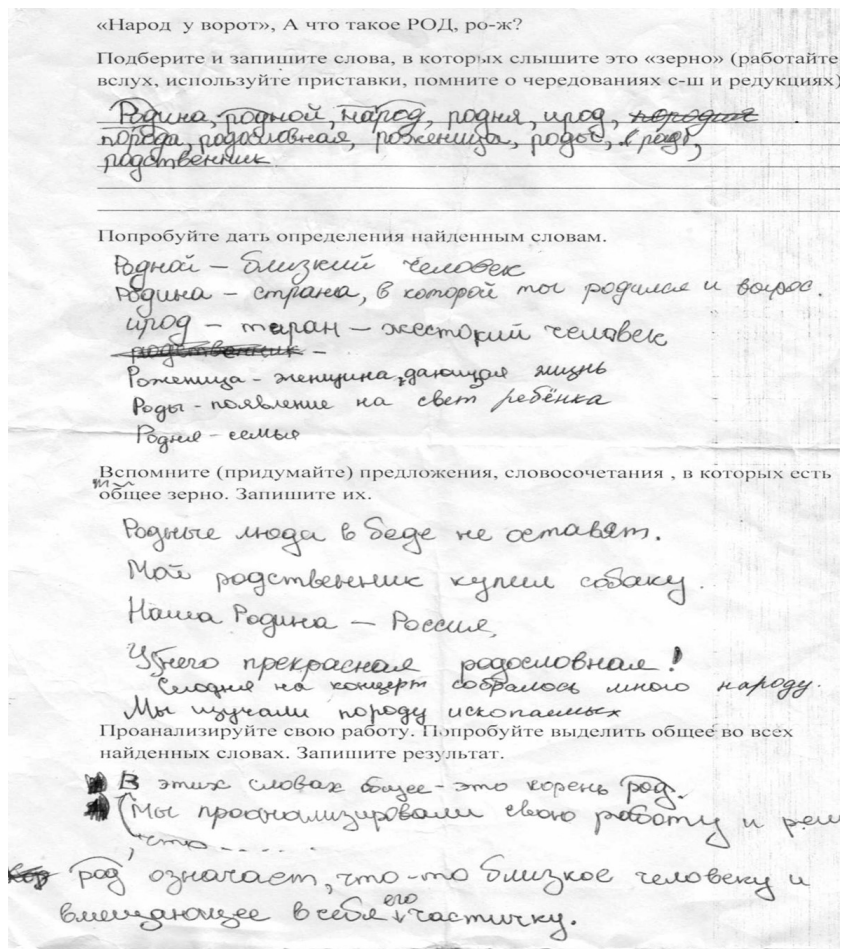 «Народ у ворот», А что такое РОД, ро-ж?
Подберите и запишите слова, в которых слышите это «зерно» (работайте
вслух, используйте приставки, помните о чередованиях с-ш и редукциях)
Родина, родной, народ, родня, ирод,
порода, родословная, роженица, роды,
родственник
Попробуйте дать определения найденным словам.
Родной – близкий человек
Родина – страна, в которой ты родился и вырос.
ирод – тиран – жестокий человек
родственник –
Роженица - женщина, дающая жизнь
Роды - появление на свет ребёнка
Родня - семья
Вспомните (придумайте) предложения, словосочетания , в которых есть
общее зерно. Запишите их.
Родные люди в беде не оставят.
Мой родственник купил собаку.
Наша Родина – Россия.
У него прекрасная родословная!
Сегодня на концерт собралось много народу.
Мы изучали породу ископаемых
Проанализируйте свою работу. Попробуйте выделить общее во всех
найденных словах. Запишите результат.
В этих словах общее - это корень род.
(Мы проанализировали свою работу и реш
что .....
род означает, что-то близкое человеку и
вмещающее в себя его частичку.